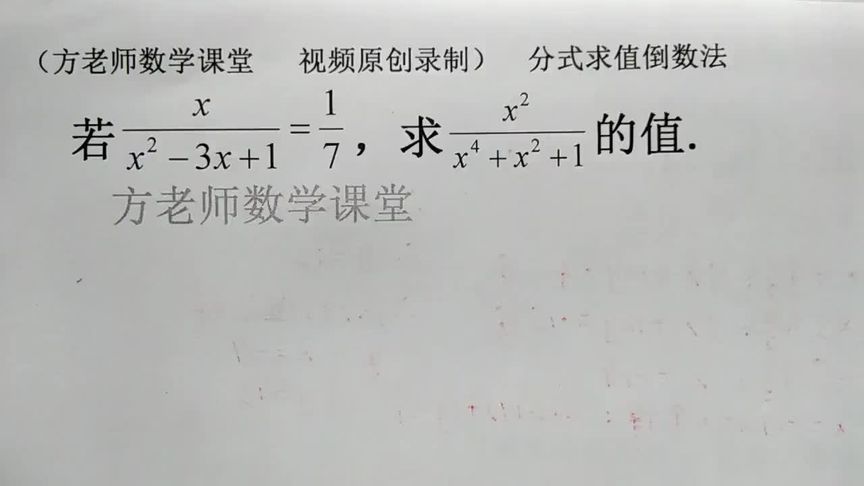 （方老师数学课堂 视频原创录制） 分式求值倒数法
若 x/(x²－3x+1) = 1/7 ，求 x²/(x⁴+x²+1) 的值.
方老师数学课堂